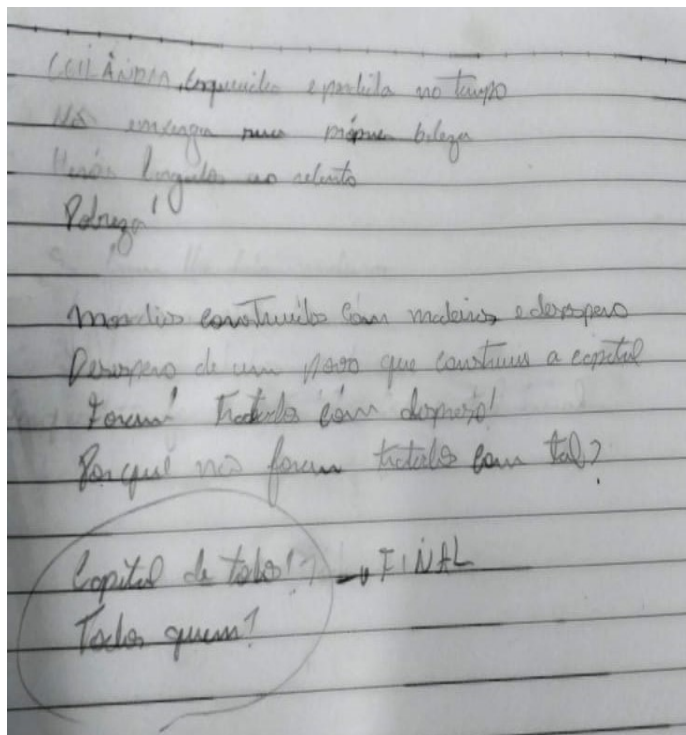 CEILÂNDIA, esquecida e perdida no tempo
Não enxerga sua própria beleza
ao relento
Pobreza!
Moradias construídas com madeiras e desespero
Desespero de um povo que construiu a capital
Foram! Tratados com desprezo!
Porquê não foram tratados com tal?
Capital de todos!? → FINAL
Todos quem?